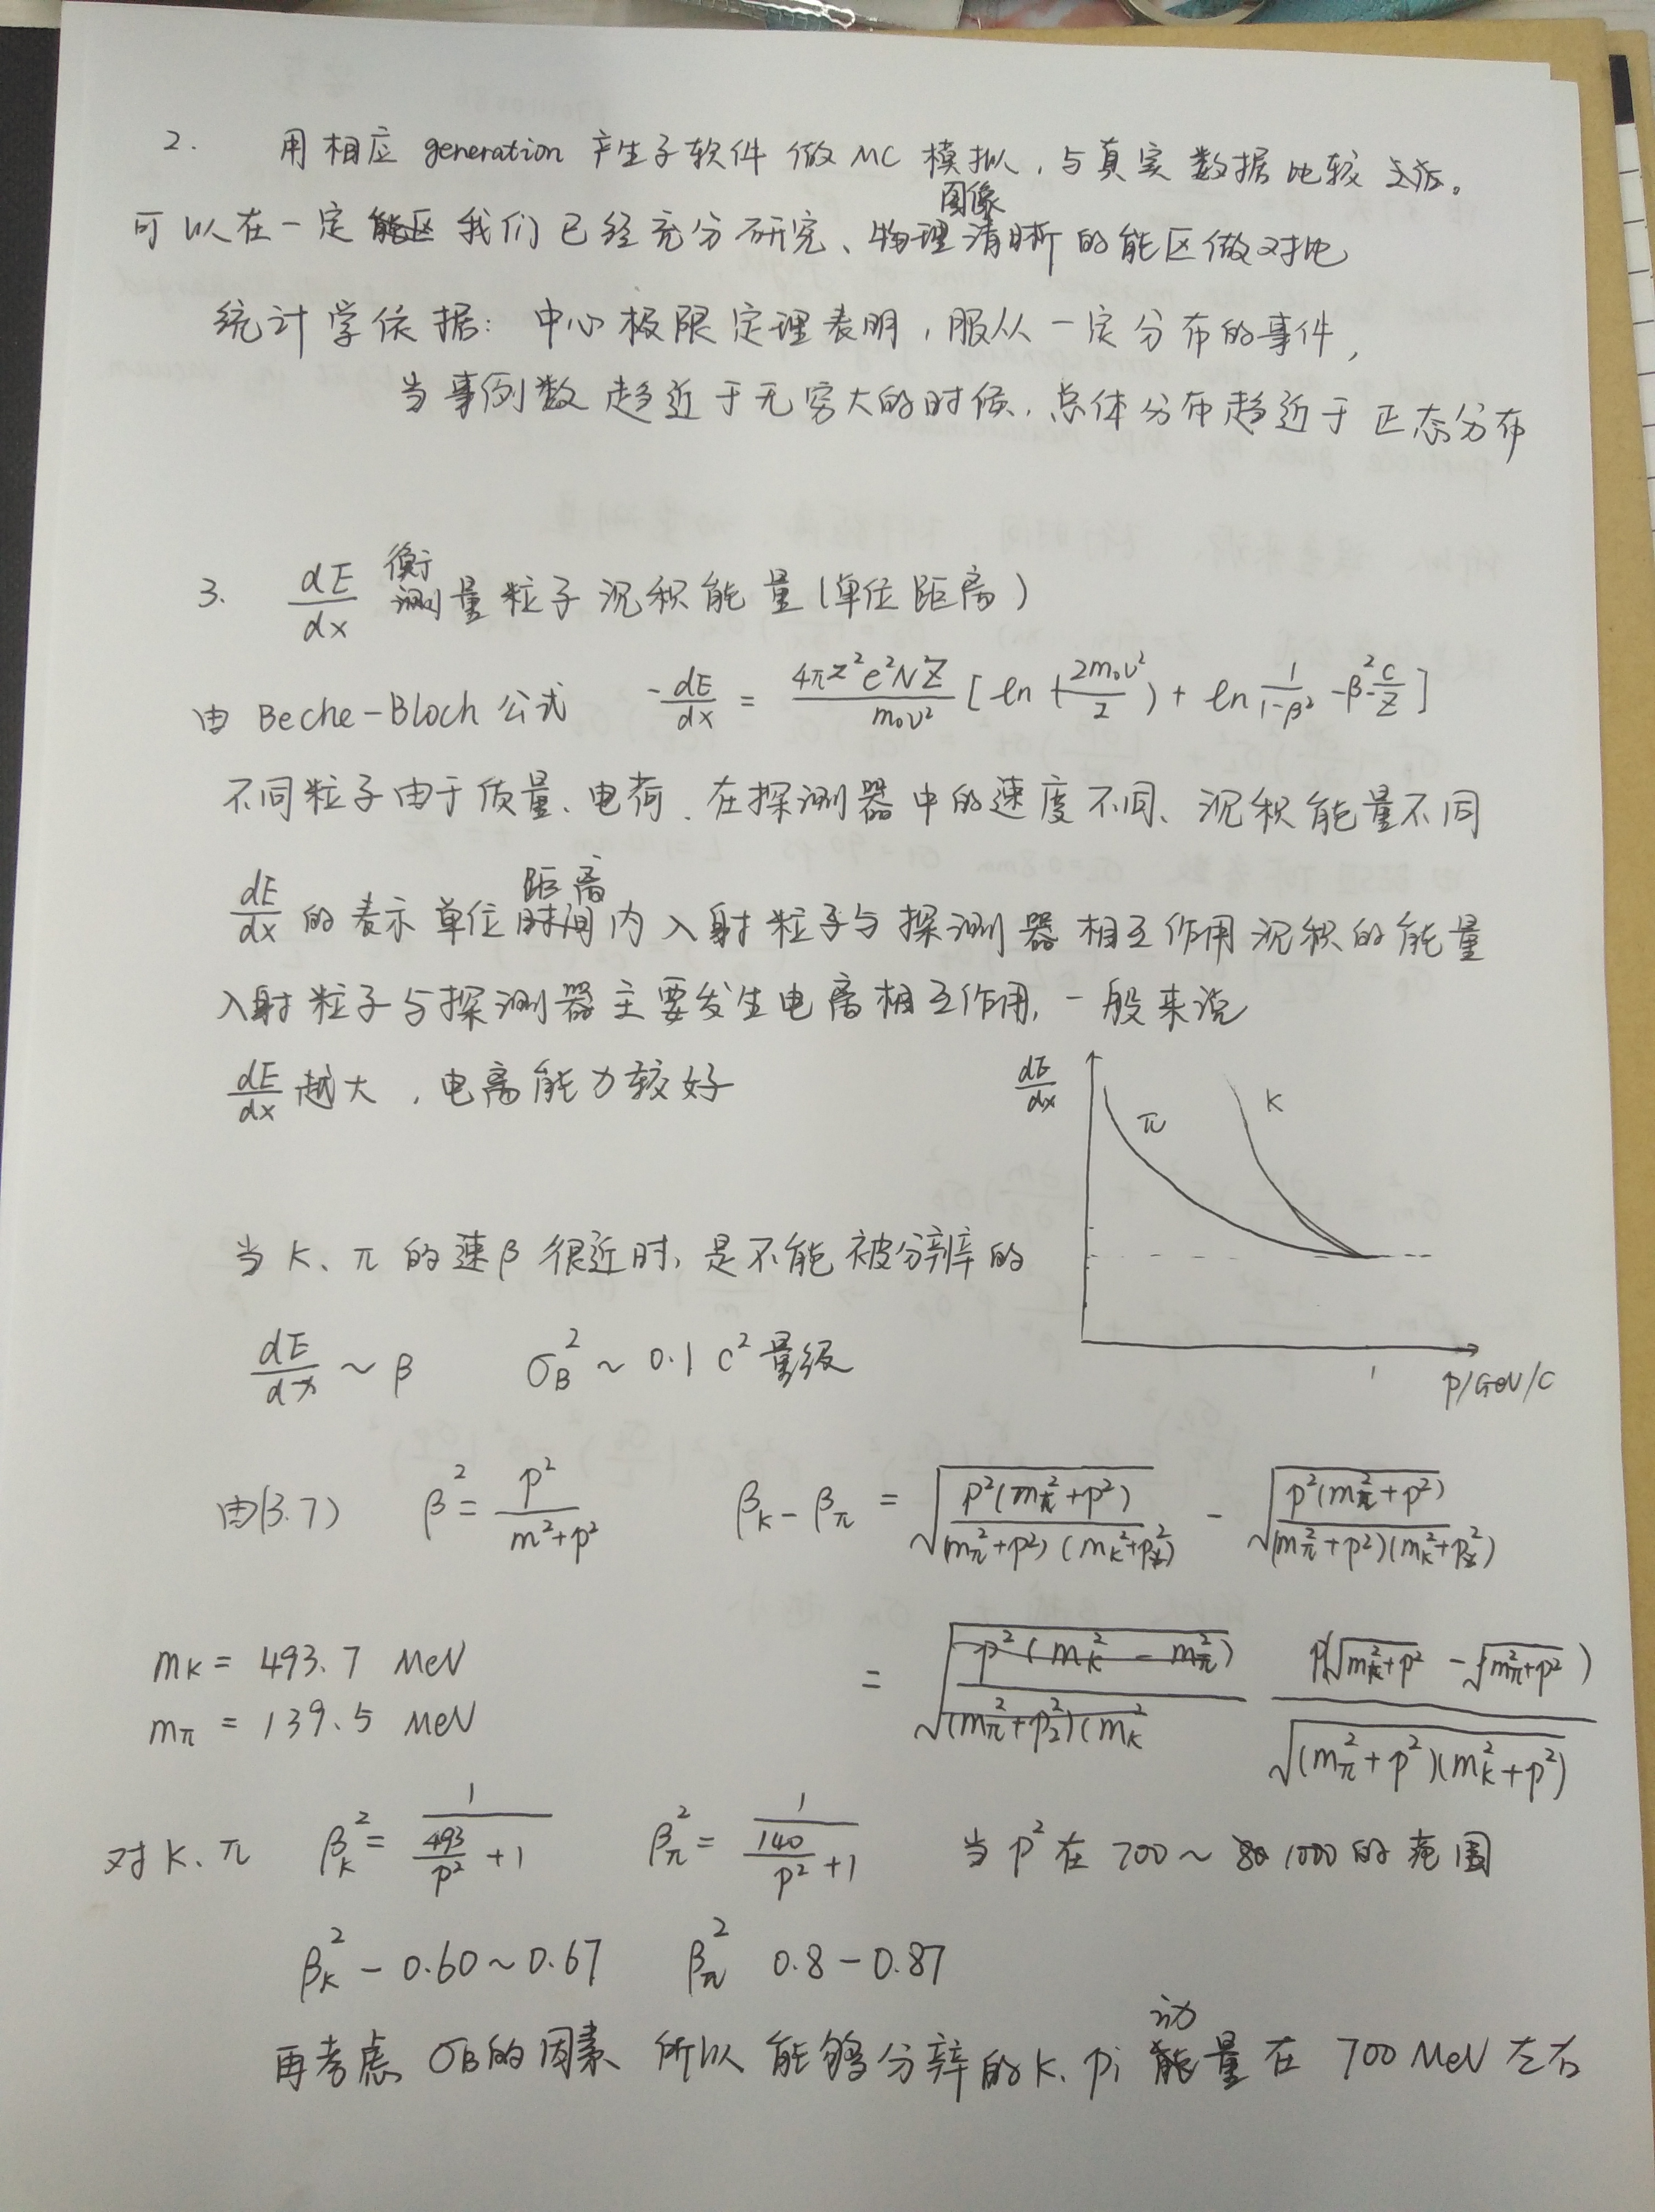 2. 用相应 generation 产生子软件做MC模拟，与真实数据比较。
图像
可以在一定能区我们已经充分研究、物理清晰的能区做对比
统计学依据：中心极限定理表明，服从一定分布的事件，
当事例数趋近于无穷大的时候，总体分布趋近于正态分布
衡
3、 dE/dx 测量粒子沉积能量(单位距离)
由 Beche-Bloch 公式 -dE/dx = 4πz²e²N²Z/m₀v² [ln(2m₀v²/2) + ln 1/(1-β²) - β² - C/Z]
不同粒子由于质量、电荷、在探测器中的速度不同、沉积能量不同
距离
dE/dx 的表示单位时间内入射粒子与探测器相互作用沉积的能量
入射粒子与探测器主要发生电离相互作用，一般来说
dE/dx 越大，电离能力较好
dE/dx
π
K
1
p/GeV/c
当K、π的速β很近时，是不能被分辨的
dE/dx ~ β σ_B² ~ 0.1 c² 量级
由(3.7) β² = p²/(m²+p²) β_K - β_π = √(p²(m_π²+p²)/((m_π²+p²)(m_K²+p²))) - √(p²(m_π²+p²)/((m_π²+p²)(m_K²+p²)))
m_K = 493.7 MeV
m_π = 139.5 MeV
= √(p²(m_K² - m_π²)/((m_π²+p²)(m_K² p(√(m_K²+p²) - √(m_π²+p²))/√((m_π²+p²)(m_K²+p²))
对K、π β_K² = 1/(493/p² + 1) β_π² = 1/(140/p² + 1) 当p²在700~1000的范围
β_K² - 0.60~0.67 β_π² 0.8-0.87
动
再考虑σ_B的因素 所以能够分辨的K、pi 能量在 700 MeV 左右